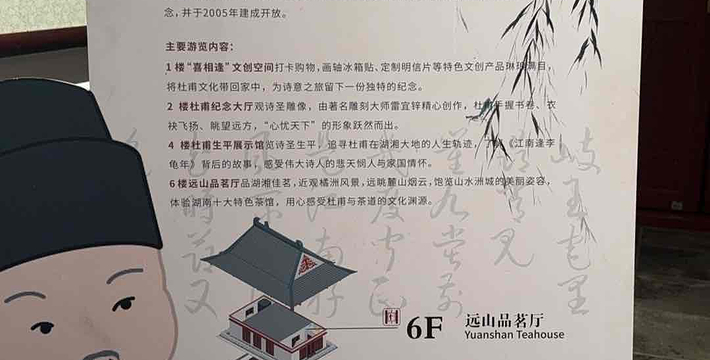 念,并于2005年建成开放。
主要游览内容:
1楼“喜相逢”文创空间打卡购物,画轴冰箱贴、定制明信片等特色文创产品琳琅满目,
将杜甫文化带回家中,为诗意之旅留下一份独特的纪念。
2 楼杜甫纪念大厅观诗圣雕像,由著名雕刻大师雷宜锌精心创作,杜甫手握书卷、衣
袂飞扬、眺望远方,“心忧天下”的形象跃然而出。
4 楼杜甫生平展示馆览诗圣生平,追寻杜甫在湖湘大地的人生轨迹,了解《江南逢李
龟年》背后的故事,感受伟大诗人的悲天悯人与家国情怀。
6楼远山品茗厅品湖湘佳茗,近观橘洲风景,远眺麓山烟云,饱览山水洲城的美丽姿容,
体验湖南十大特色茶馆,用心感受杜甫与茶道的文化渊源。
6F 远山品茗厅
Yuanshan Teahouse